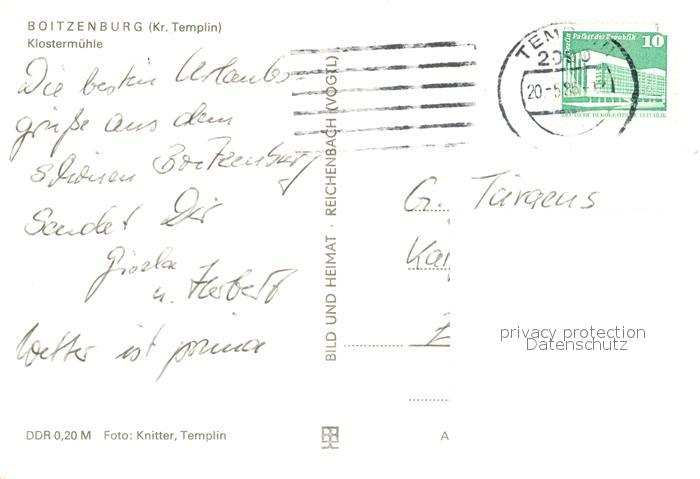 BOITZENBURG (Kr. Templin)
Klostermühle
Die besten Urlaubs-
grüße aus dem
schönen Boitzenburg
Sendet Dir
Gisela
u. Herbert
Wetter ist prima
DDR 0,20 M Foto: Knitter, Templin
BILD UND HEIMAT · REICHENBACH (VOGTL)
TEMPLIN
2090
20.-5.86
Berlin Palast der Republik 10
DEUTSCHE DEMOKRATISCHE REPUBLIK
G.
Ka
privacy protection
Datenschutz
A